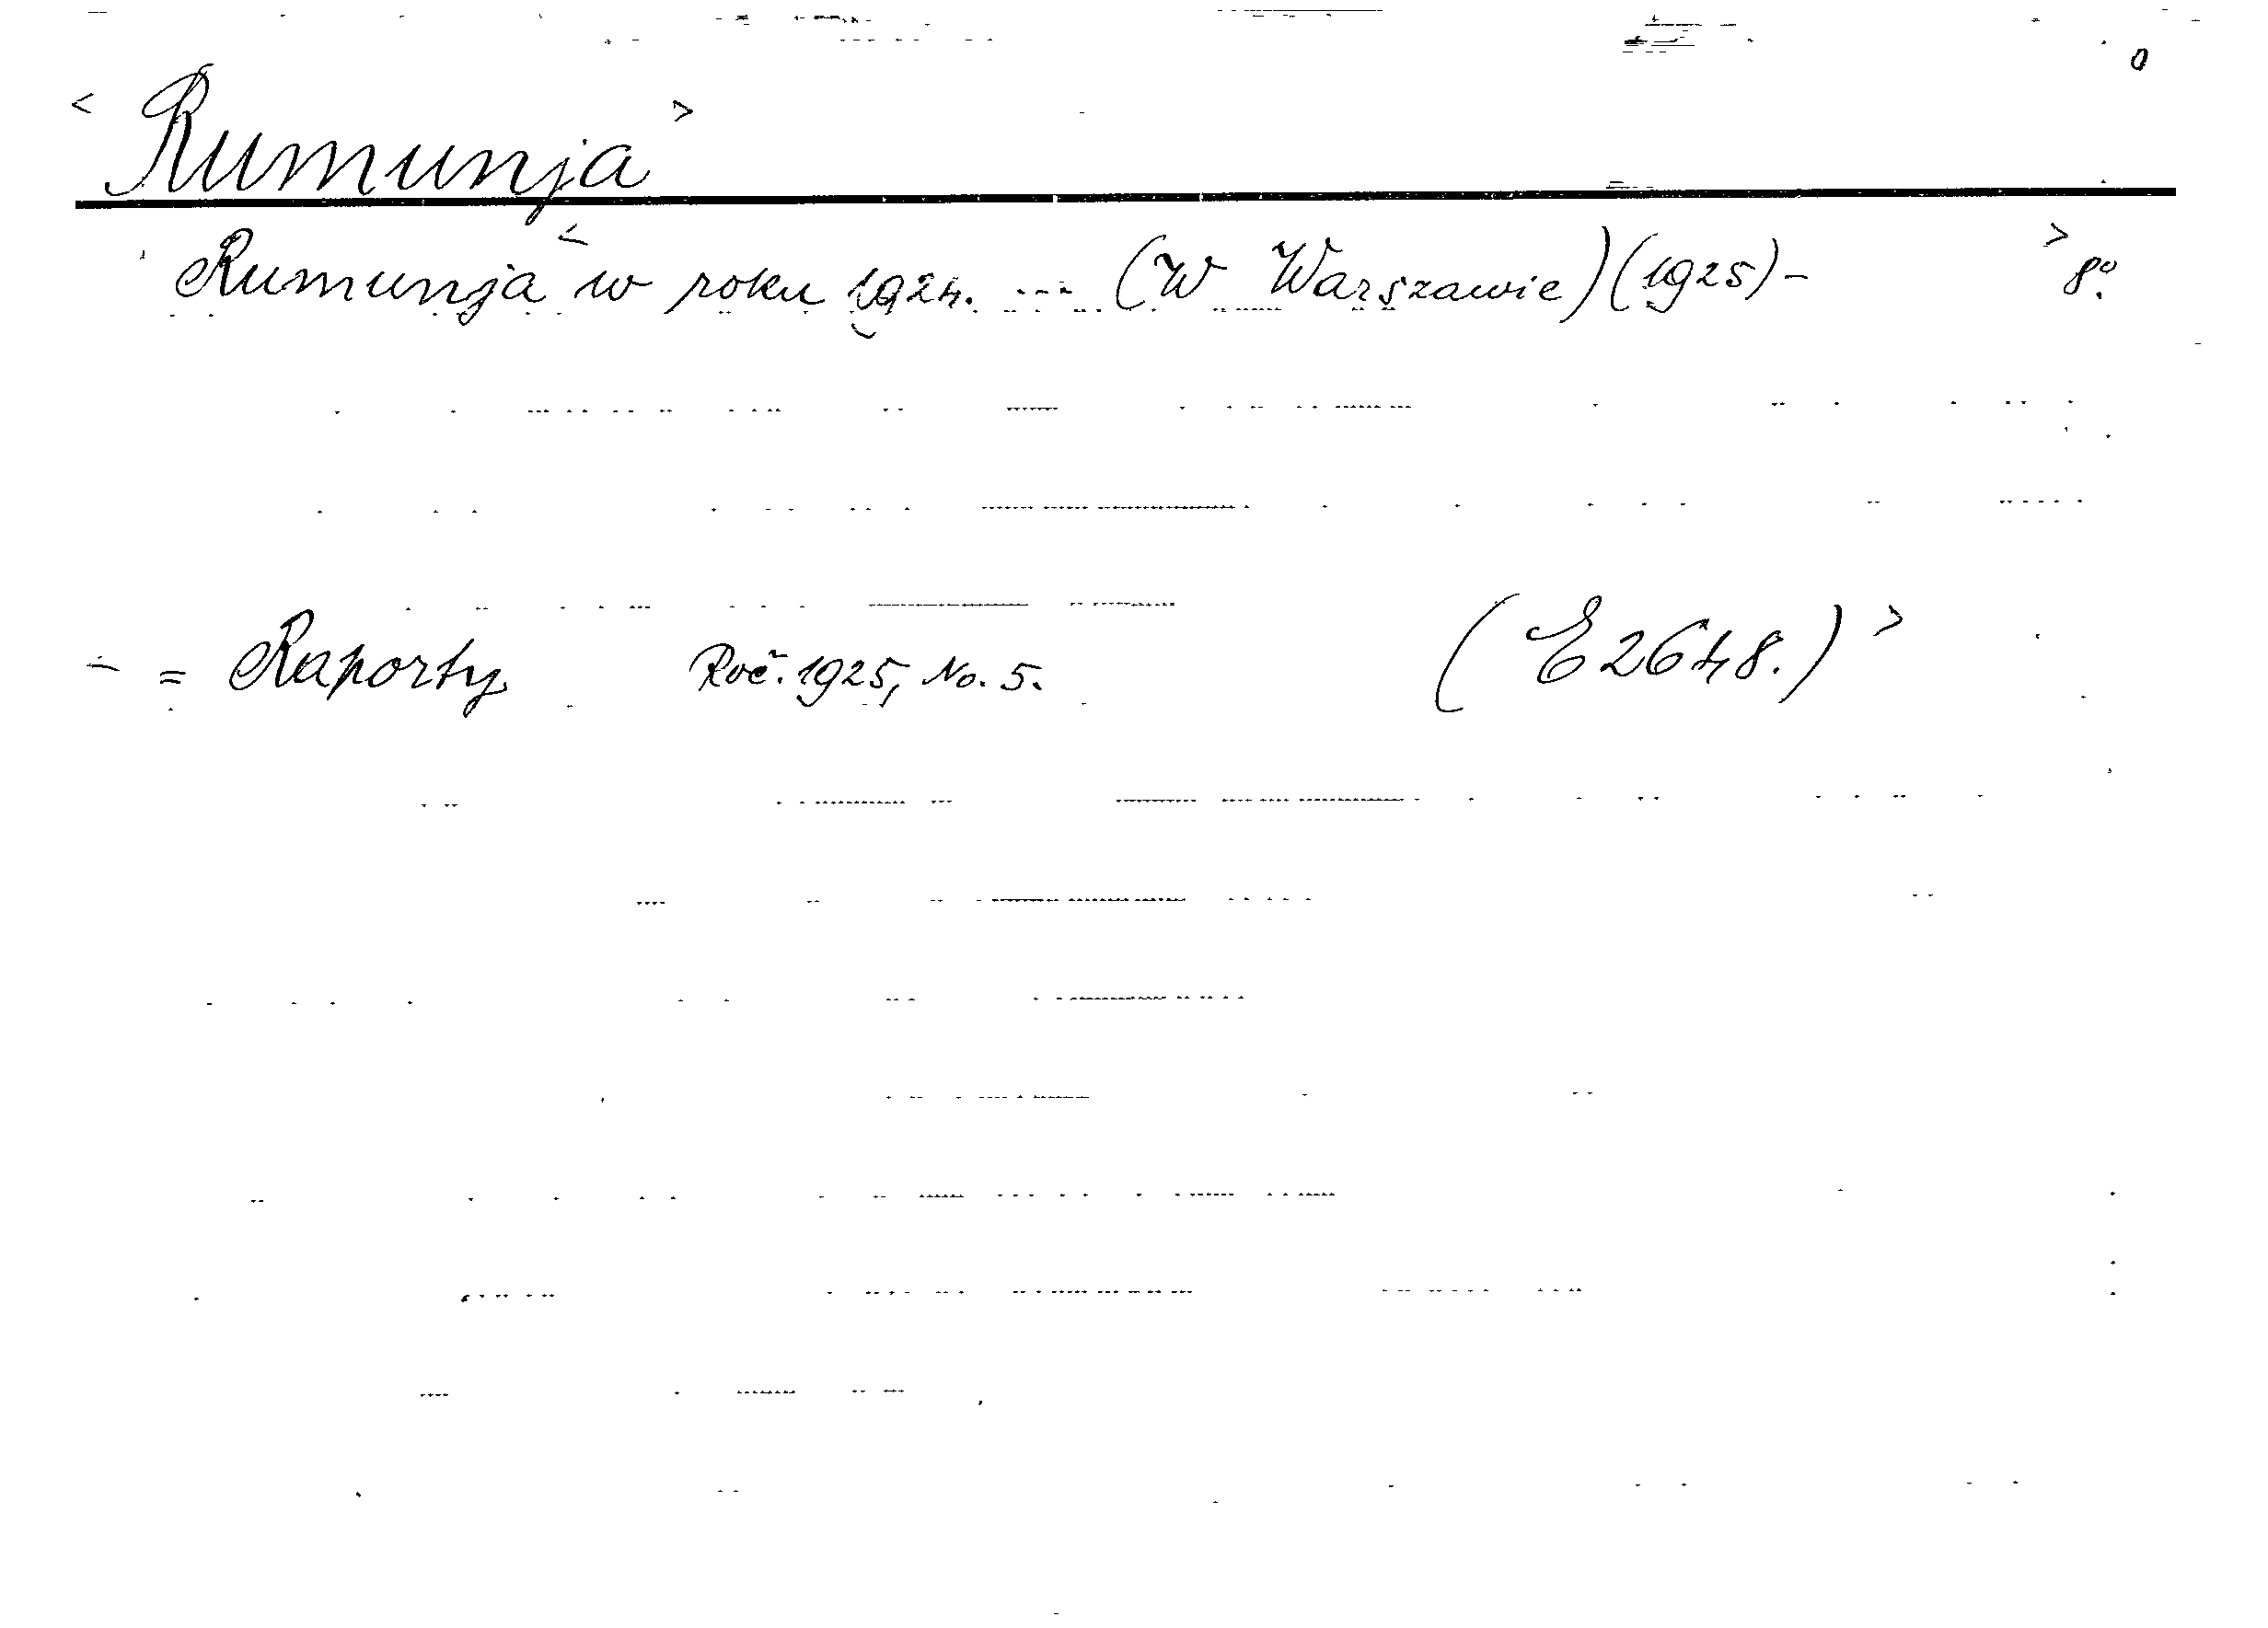 0
< Rumunja >
Rumunja < w roku 1924. --- (W Warszawie) (1925) - > 8°.
- = Raporty Roč. 1925, No. 5. (E 2648.) >